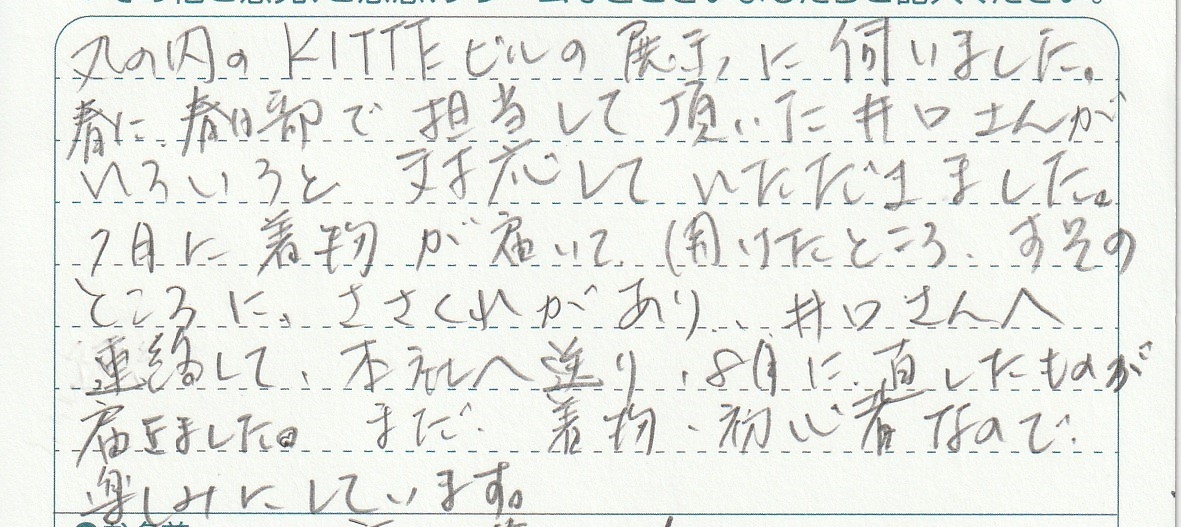 丸の内の KITTEビルの 展示に 伺いました。
春に、春日部で 担当して 頂いた 井口さんが
いろいろと 対応して いただきました。
7月に 着物 が 届いて、開けたところ、すその
ところに、ささくれがあり、井口さんへ
連絡して、本社へ送り、8月に、直したものが
届きました。まだ、着物、初心者なので、
楽しみにしています。